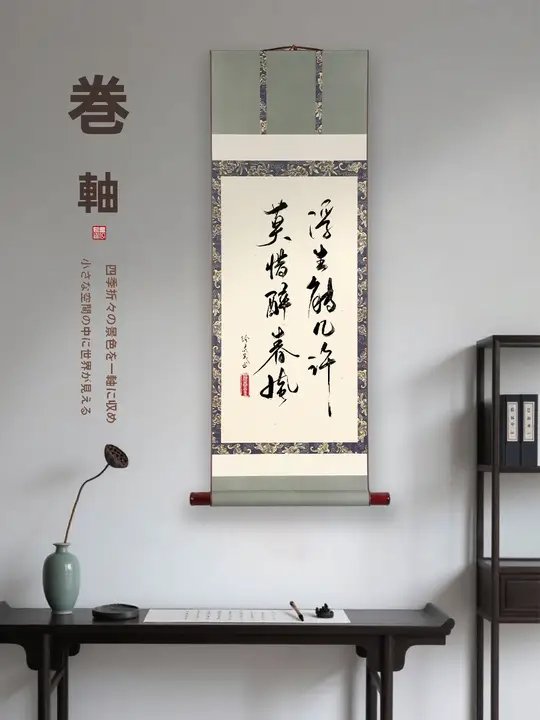 巻軸
四季折々の景色を一軸に収め
小さな空間の中に世界が見える
浮生能几许
莫惜醉春风